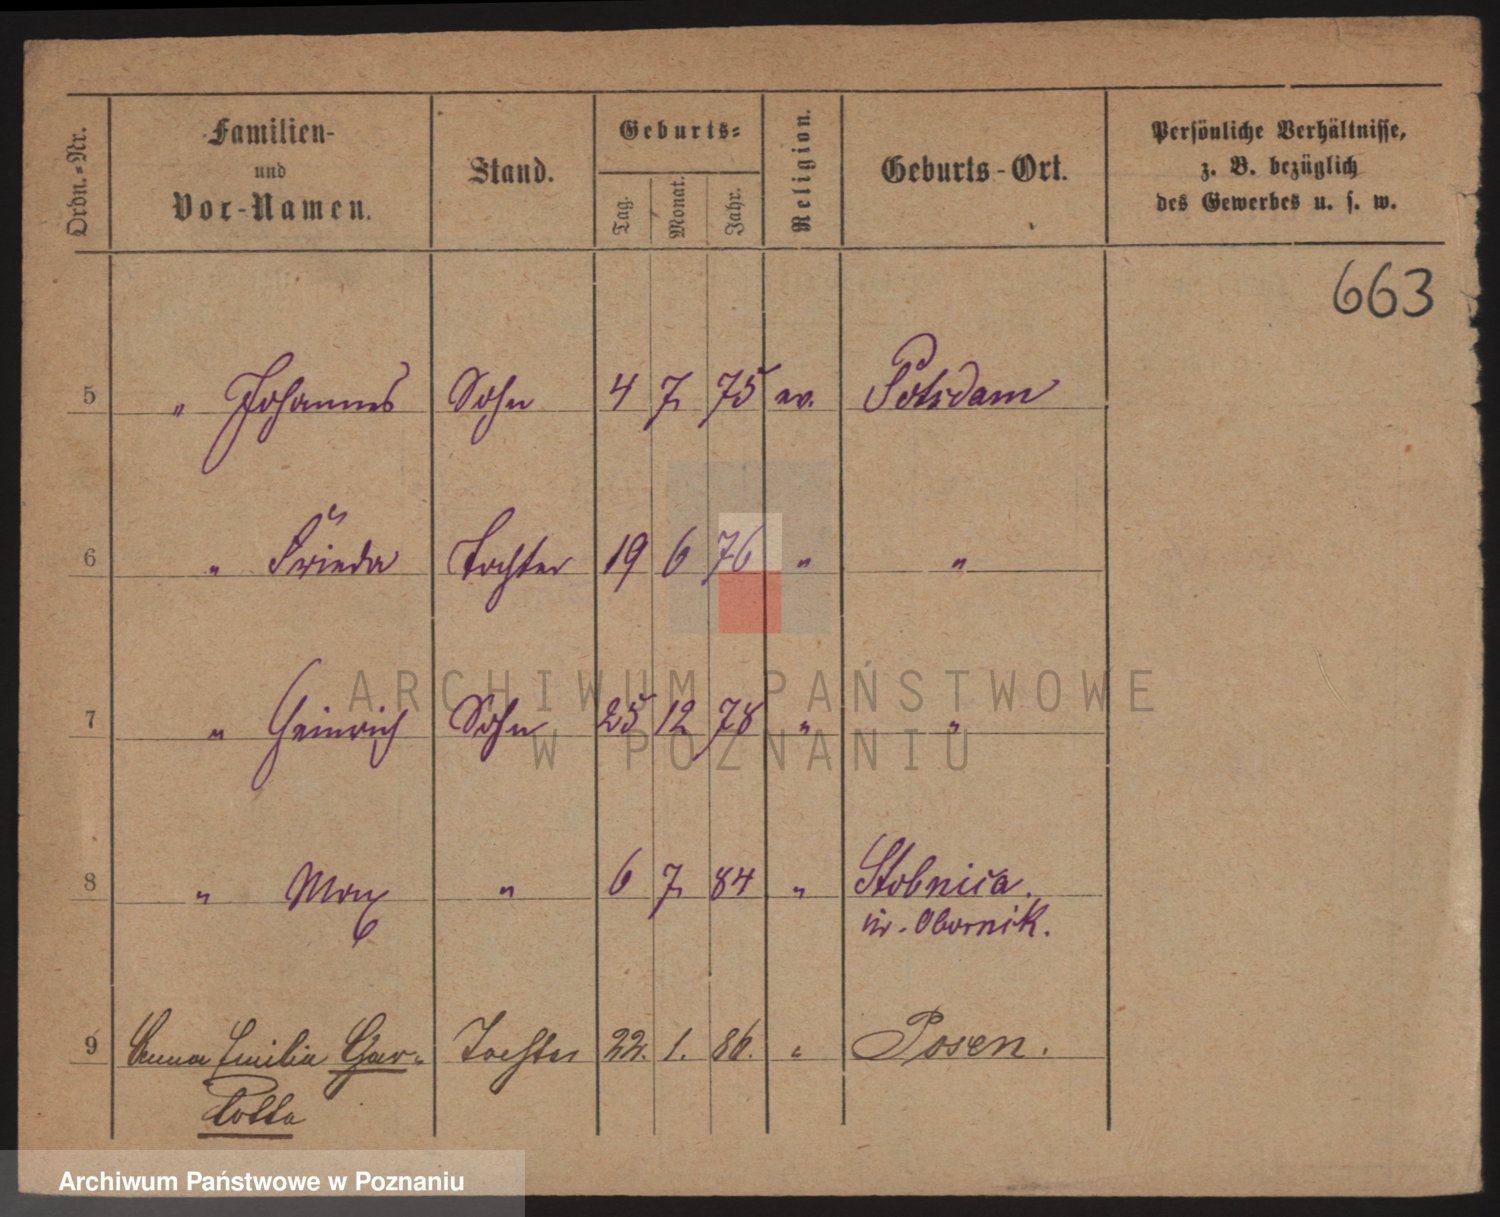 Ordn.=Nr. Familien- und Vor-Namen. Stand. Geburts= Tag. Monat. Jahr. Religion. Geburts-Ort. Persönliche Verhältnisse, z. B. bezüglich des Gewerbes u. s. w.
663
5 " Johannes Sohn 4 7 75 ev. Potsdam
6 " Frieda Tochter 19 6 76 " "
7 " Heinrich Sohn 25 12 78 " "
8 " Max " 6 7 84 " Stobnica.
kr. Obornik.
9 Anna Emilia Char- Tochter 22. 1. 86. " Posen.
lotte
ARCHIWUM PAŃSTWOWE
W POZNANIU
Archiwum Państwowe w Poznaniu